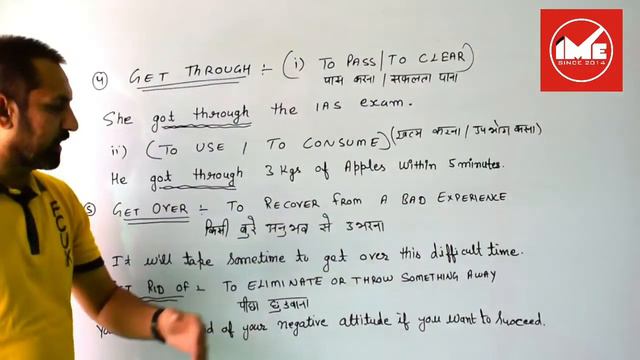 IME
SINCE 2014
4) GET THROUGH :- (i) TO PASS/TO CLEAR)
पास करना / सफलता पाना
She got through the IAS exam.
ii) (TO USE / TO CONSUME) (खत्म करना / उपभोग करना)
He got through 3 Kgs of Apples within 5 minutes.
5) GET OVER :- TO RECOVER FROM A BAD EXPERIENCE
किसी बुरे अनुभव से उभरना
It will take sometime to get over this difficult time.
RID OF :- TO ELIMINATE OR THROW SOMETHING AWAY
पीछा छुडवाना
of your negative attitude if you want to succeed.
ECUK